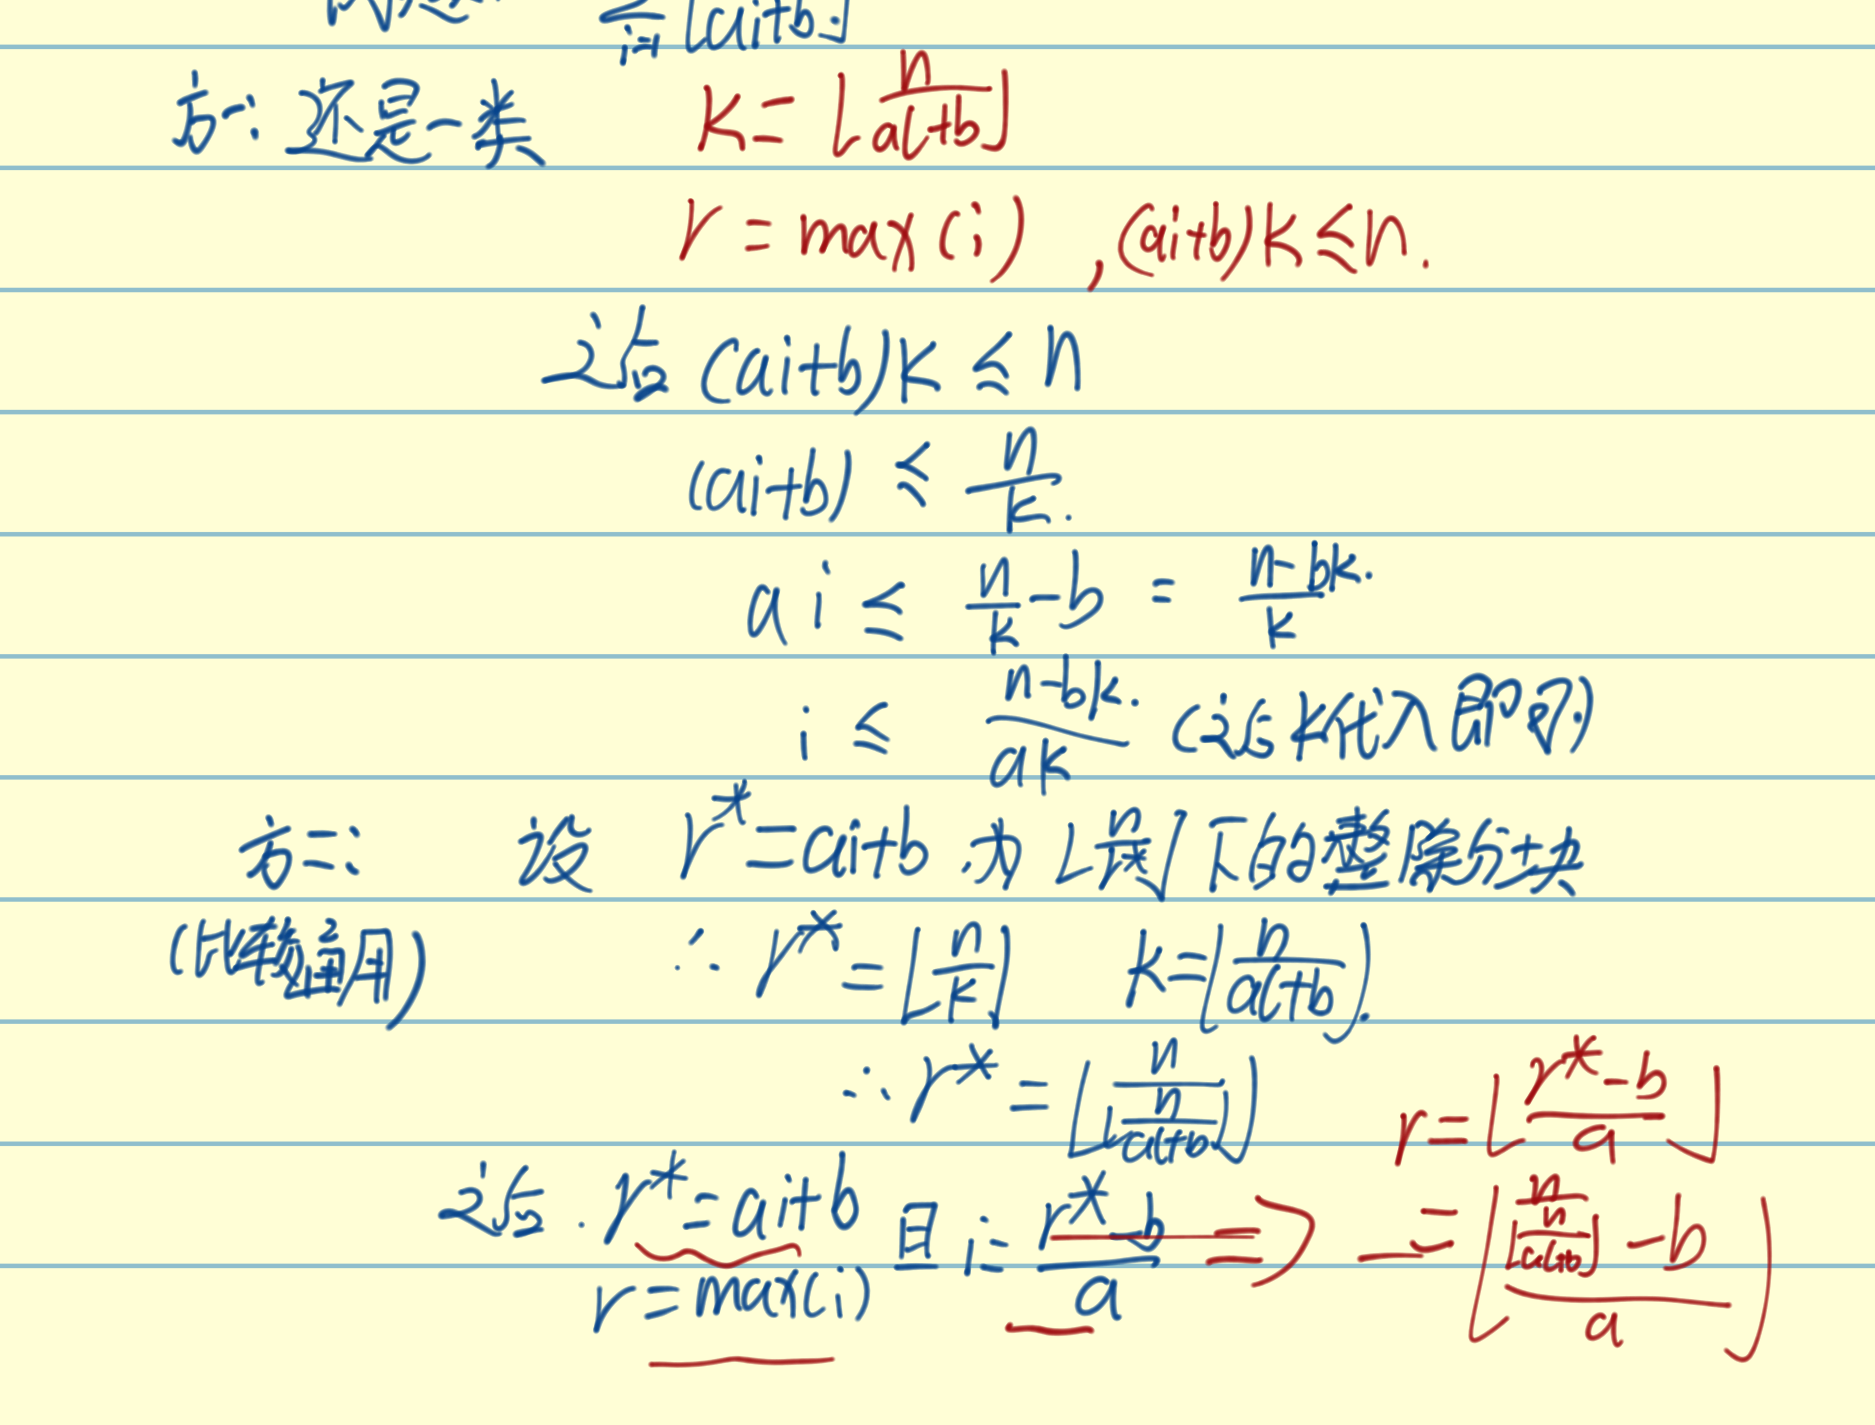 ∑ i=1 ⌊ai+b⌋
方一: 还是一类 K = ⌊n/(al+b)⌋
r = max(i) , (ai+b)K ≤ n.
之后 (ai+b)K ≤ n
(ai+b) ≤ n/k.
ai ≤ n/k - b = (n-bk.)/k
i ≤ (n-bk.)/(ak) (之后K代入即可)
方二: 设 r* = ai+b 为 ⌊n/r*⌋ 下的整除分块
(比较通用) ∴ r* = ⌊n/k⌋ K = ⌊n/(al+b)⌋.
∴ r* = ⌊n/⌊n/(al+b)⌋⌋ r = ⌊(r*-b)/a⌋
之后. r* = ai+b 且 i = (r*-b)/a ⇒ = ⌊(n/⌊n/(al+b)⌋ - b)/a⌋
r = max(i)